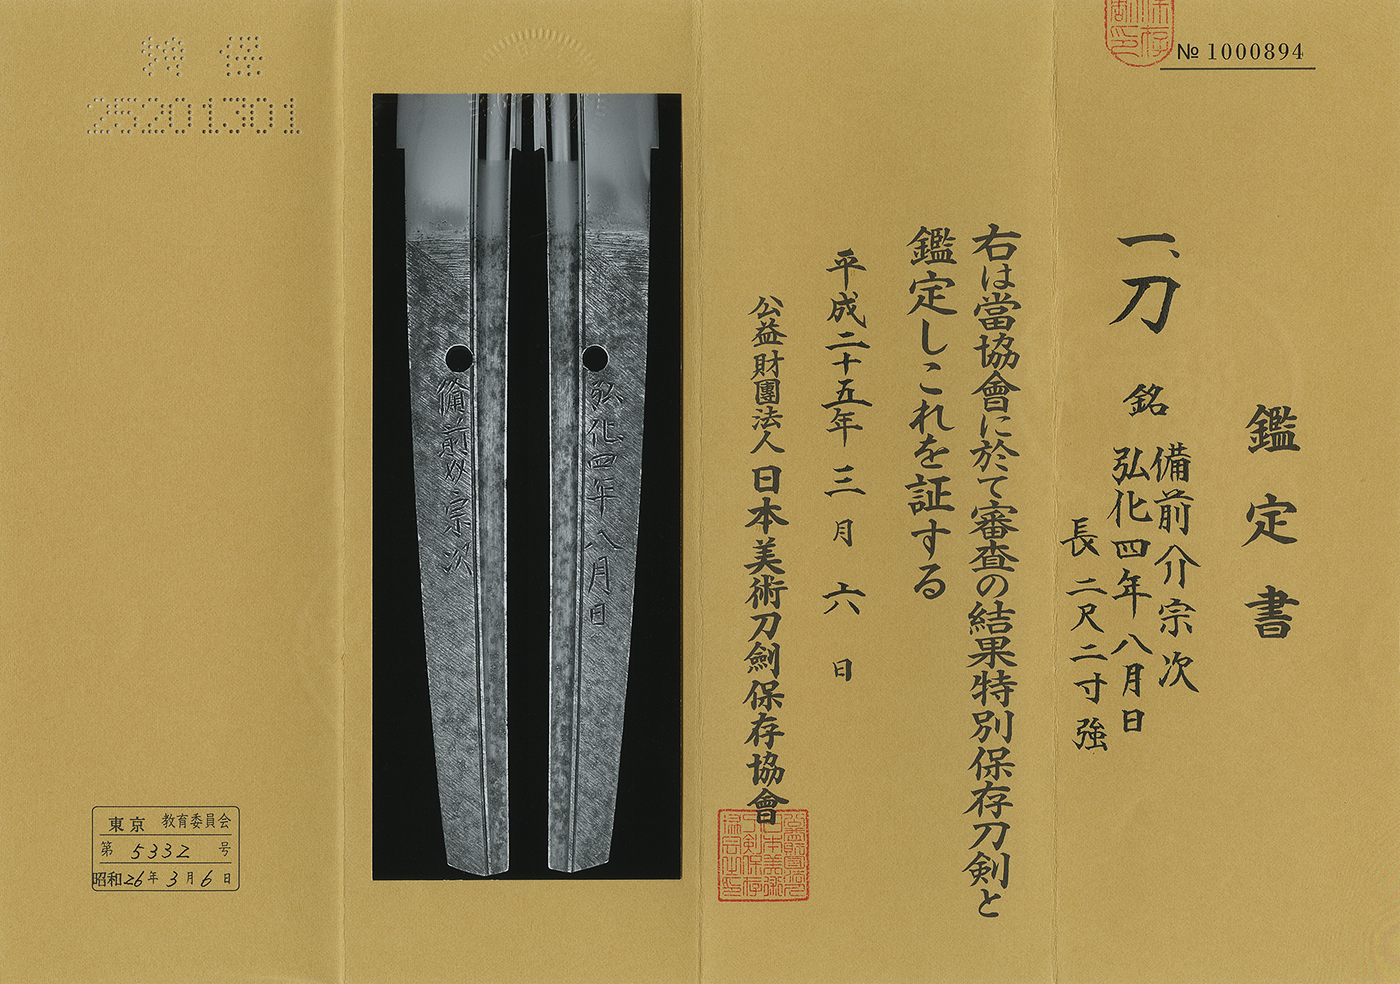 № 1000894
鑑定書
一、刀
銘 備前介宗次
弘化四年八月日
長 二尺二寸強
右は當協會に於て審査の結果特別保存刀剣と
鑑定しこれを証する
平成二十五年 三月 六日
公益財團法人 日本美術刀劍保存協會
弘化四年八月日
備前介宗次
特 保
25201301
東京 教育委員会
第 5332 号
昭和26年3月6日